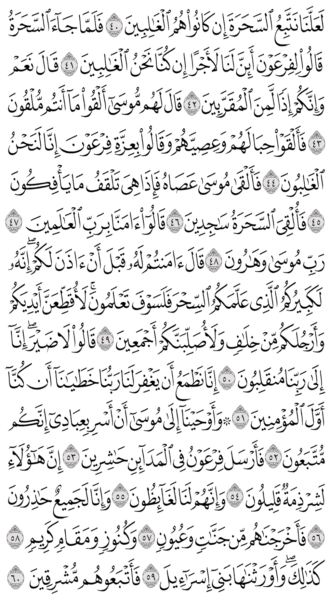 لَعَلَّنَا نَتَّبِعُ ٱلسَّحَرَةَ إِن كَانُوا۟ هُمُ ٱلْغَـٰلِبِينَ ٤٠ فَلَمَّا جَآءَ ٱلسَّحَرَةُ
قَالُوا۟ لِفِرْعَوْنَ أَئِنَّ لَنَا لَأَجْرًا إِن كُنَّا نَحْنُ ٱلْغَـٰلِبِينَ ٤١ قَالَ نَعَمْ
وَإِنَّكُمْ إِذًا لَّمِنَ ٱلْمُقَرَّبِينَ ٤٢ قَالَ لَهُم مُّوسَىٰٓ أَلْقُوا۟ مَآ أَنتُم مُّلْقُونَ
٤٣ فَأَلْقَوْا۟ حِبَالَهُمْ وَعِصِيَّهُمْ وَقَالُوا۟ بِعِزَّةِ فِرْعَوْنَ إِنَّا لَنَحْنُ
ٱلْغَـٰلِبُونَ ٤٤ فَأَلْقَىٰ مُوسَىٰ عَصَاهُ فَإِذَا هِىَ تَلْقَفُ مَا يَأْفِكُونَ
٤٥ فَأُلْقِىَ ٱلسَّحَرَةُ سَـٰجِدِينَ ٤٦ قَالُوٓا۟ ءَامَنَّا بِرَبِّ ٱلْعَـٰلَمِينَ ٤٧
رَبِّ مُوسَىٰ وَهَـٰرُونَ ٤٨ قَالَ ءَامَنتُمْ لَهُۥ قَبْلَ أَنْ ءَاذَنَ لَكُمْ ۖ إِنَّهُۥ
لَكَبِيرُكُمُ ٱلَّذِى عَلَّمَكُمُ ٱلسِّحْرَ فَلَسَوْفَ تَعْلَمُونَ ۚ لَأُقَطِّعَنَّ أَيْدِيَكُمْ
وَأَرْجُلَكُم مِّنْ خِلَـٰفٍ وَلَأُصَلِّبَنَّكُمْ أَجْمَعِينَ ٤٩ قَالُوا۟ لَا ضَيْرَ ۖ إِنَّآ
إِلَىٰ رَبِّنَا مُنقَلِبُونَ ٥٠ إِنَّا نَطْمَعُ أَن يَغْفِرَ لَنَا رَبُّنَا خَطَـٰيَـٰنَآ أَن كُنَّآ
أَوَّلَ ٱلْمُؤْمِنِينَ ٥١ ۞ وَأَوْحَيْنَآ إِلَىٰ مُوسَىٰٓ أَنْ أَسْرِ بِعِبَادِىٓ إِنَّكُم
مُّتَّبَعُونَ ٥٢ فَأَرْسَلَ فِرْعَوْنُ فِى ٱلْمَدَآئِنِ حَـٰشِرِينَ ٥٣ إِنَّ هَـٰٓؤُلَآءِ
لَشِرْذِمَةٌ قَلِيلُونَ ٥٤ وَإِنَّهُمْ لَنَا لَغَآئِظُونَ ٥٥ وَإِنَّا لَجَمِيعٌ حَـٰذِرُونَ
٥٦ فَأَخْرَجْنَـٰهُم مِّن جَنَّـٰتٍ وَعُيُونٍ ٥٧ وَكُنُوزٍ وَمَقَامٍ كَرِيمٍ ٥٨
كَذَٰلِكَ وَأَوْرَثْنَـٰهَا بَنِىٓ إِسْرَٰٓءِيلَ ٥٩ فَأَتْبَعُوهُم مُّشْرِقِينَ ٦٠